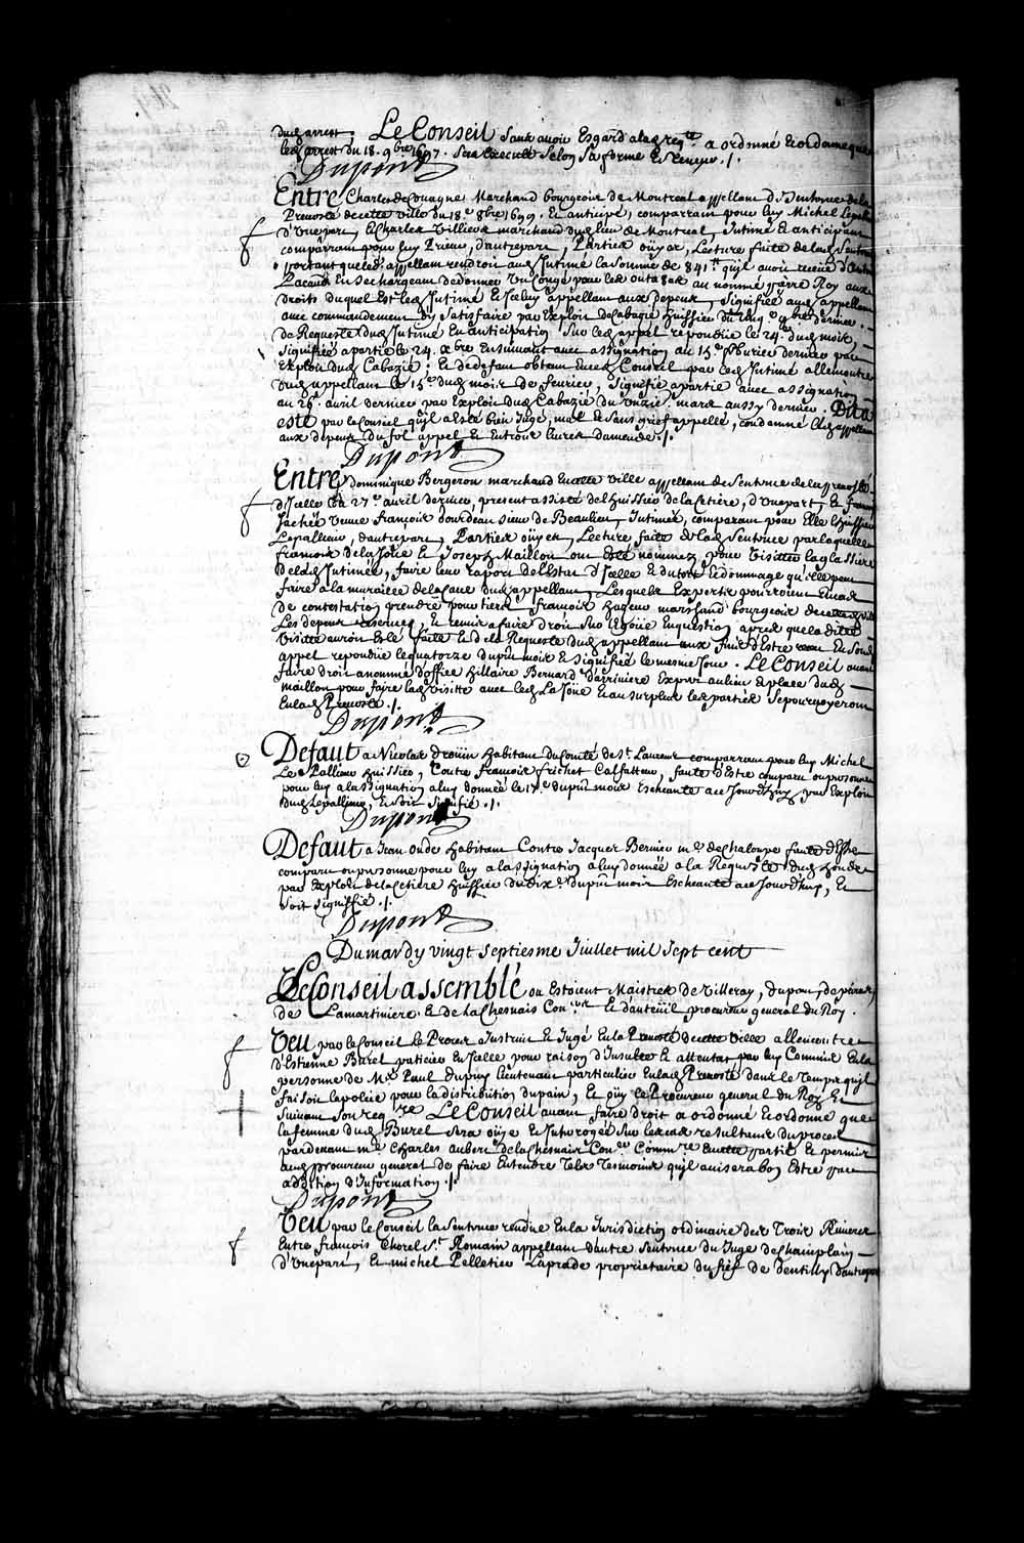 dud arrest, Le Conseil sans avoir Esgard a lad reqte a ordonné et ordonne que
led arrest du 18. 9bre 1697. sera executé selon sa forme et teneur ./.
Dupont
Entre Charles de Couagne Marchand bourgeois de Montreal appellant de Sentence de la
Prevosté de cette ville du 18.e 8bre 1699. et anticipé, comparant pour luy Michel Lepall
d'Une part, et Charles Villiers marchand dud lieu de Montreal, Intimé et anticipant
comparant pour luy Prieur, d'autre part, Parties oüyes, Lecture faite de lad Senten
portant que led appellant rendroit aud Intimé la somme de 841tt qu'il avoit receüe d'Anto
Pacaud En deschargeant
droits duquel Est led Intimé et Iceluy appellant aux depens, signifiée aud appellant
avec commandement d'y satisfaire par Exploit de Cabazié huissier du cinq 9bre dernier.
La Requeste dud Intimé En anticipation sur led appel repondüe le 24.e dud mois,
signifiée a partie le 29. xbre Ensuivant avec assignation au 15.e febvrier dernier par
Exploit dud Cabazié; le deffaut obtenu aud Conseil par led Intimé allencontre
dud appellant le 15.e dud mois de fevrier, signifié a partie avec assignation
au 26.e avril dernier par Exploit dud Cabazié du Unzie. mars aussy dernier. Dit a
esté par le Conseil qu'il a esté bien Jugé, mal et sans grief appellé, condamné led appellant
aux depens du fol appel et En trois livres damende ./.
Dupont
Entre Dominique Bergeron marchand En cette Ville appellant de Sentence de la prevosté
d'Icelle du 27.e avril dernier, present assisté de l'huissier de la Cetière, d'Une part, Et
Jachée veuve françois bourdeau sieur de Beaulieu, Intimée, comparant pour Elle l'huissier
Lepallieur, dautre part, Parties oüyes, Lecture faite de lad Sentence par laquelle
francois de la Joüe et Joseph Maillou ont esté nommez pour visitter la glassiere
de lad Intimée, faire leur raport de l'Estat d'Icelle et du tort et dommage qu'elle peut
faire a la muraille de la Cave dud appellant, Lesquels Experts pourroient En cas
de contestation prendre pour tiers françois hazeur marchand bourgeois de cette d ville
Les depens reservez, et remis a faire droit sur En question aprés que la dite
visitte auroit Esté faite et de la Requeste dud appellant aux fins d'Estre receu En son
appel repondüe le quatorze du pnt mois et signifiée le mesme Jour. Le Conseil avant
faire droit a nommé d'office hillaire Bernard dariviere Expert au lieu et place dud
maillou pour faire lad visitte avec led La Joüe Et au surplus les parties se pourvoyeront
En lad Prevosté ./.
Dupont
Defaut a Nicolas Droüin habitant du Comté de St. Laurent comparant par luy Michel
Le Pallieur huissier, Contre francois frichet Calfatteur, faute d'Estre comparu ou personne
pour luy a l'assignation a luy donnée le du pnt mois Escheante a ce Jourd'huy par Exploit
dud Lepallieur, et soit signifié ./.
Dupont
Defaut a Jean Oude habitant Contre Jacques Bernier me de chaloupe faute d'Estre
comparu ou personne pour luy a l'assignation a luy donnée a la Requeste dud houde
par Exploit de la Cetiere huissier du dix du pnt mois Escheante a ce Jourd'huy, Et
soit signiffié ./.
Dupont
Du mardy vingt septiesme Juillet mil sept cent
Le Conseil assemblé ou Estoient Maistres de Villeray, dupont, de peiras,
de Lamartiniere et de la Chesnais Coners Et d'auteüil procureur general du Roy.
Veu par le Conseil le Procez Instruit Et Jugé En la Prevosté de cette Ville allencontre
d'Estienne Burel paticier En Icelle pour raison d'Insulte et attentat par luy Commis En la
personne de Mre Paul Dupuy Lieutenant particulier En lad Prevosté dans le temps qu'il
faisoit la police pour la distribution du pain, Et oüy le Procureur general du Roy Et
Suivant son reqre Le Conseil avant faire droit a ordonné et ordonne que
la femme dud Burel sera oüye Et Interogée sur les cas resultans du procez
pardevant me Charles Aubert de la Chesnais Coner Commre En cette partie Et permis
aud procureur general de faire Entendre tels tesmoins qu'il avisera bon Estre par
addition d'Information ./.
Dupont
Veu par le Conseil la Sentence rendüe En la Jurisdiction ordinaire des Trois Rivieres
Entre françois Chorel St. Romain appellant dautre Sentence du Juge de Champlain
d'Une part, Et michel Pelletier Laprade proprietaire du fief de Gentilly d'autre part